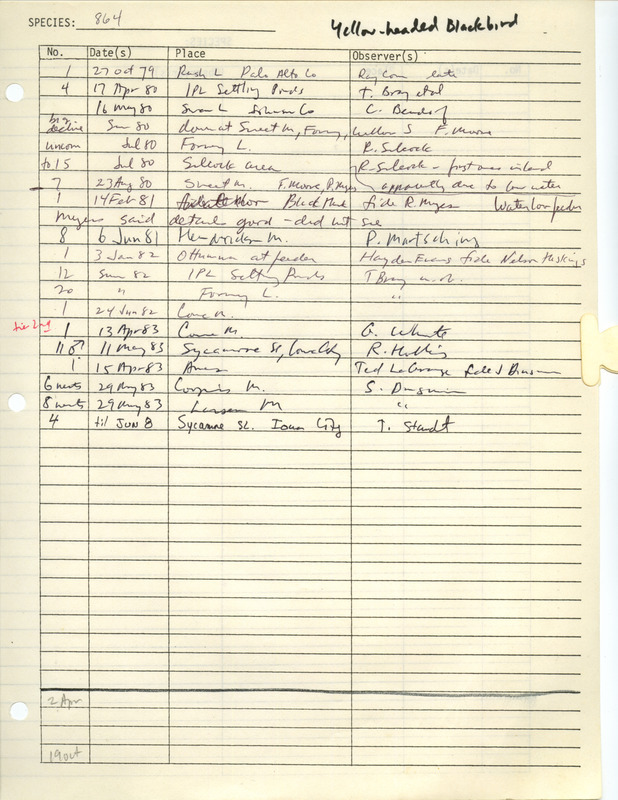 SPECIES: 864 Yellow-headed Blackbird
No. Date(s) Place Observer(s)
1 27 Oct 79 Rush L Palo Alto Co late
4 17 Apr 80 IPL Settling Ponds T. Bray etal
16 May 80 Swan L Johnson Co C. Bendorf
big decline Sum 80 down at Sweet M, Forney, S F. Moore
uncom Jul 80 Forney L. R. Silcock
to 15 Jul 80 Silcock area R. Silcock - first ones inland
7 23 Aug 80 Sweet M. F. Moore, R. Myers apparently due to low water
1 14 Feb 81 Black Hawk fide R. Myers Waterloo feeder
Meyers said details good - did not see
8 6 Jun 81 Hendrickson M. P. Martsching
1 3 Jan 82 Ottumwa at feeder Hayden Evans fide Nelson Hoskins
12 Sum 82 IPL Settling Ponds T Bray
20 " Forney L. "
1 24 Jun 82 Cone M.
tie 2nd 1 13 Apr 83 Cone M. G. White
11 ♂ 11 May 83 Sycamore St, Iowa City R. Hollis
1 15 Apr 83 Ames Ted LaGrange fide J Dinsmore
6 nests 29 May 83 M. S. Dinsmore
8 nests 29 May 83 Larson M "
4 til JUN 8 Sycamore St. Iowa City T. Staudt
2 Apr
19 Oct